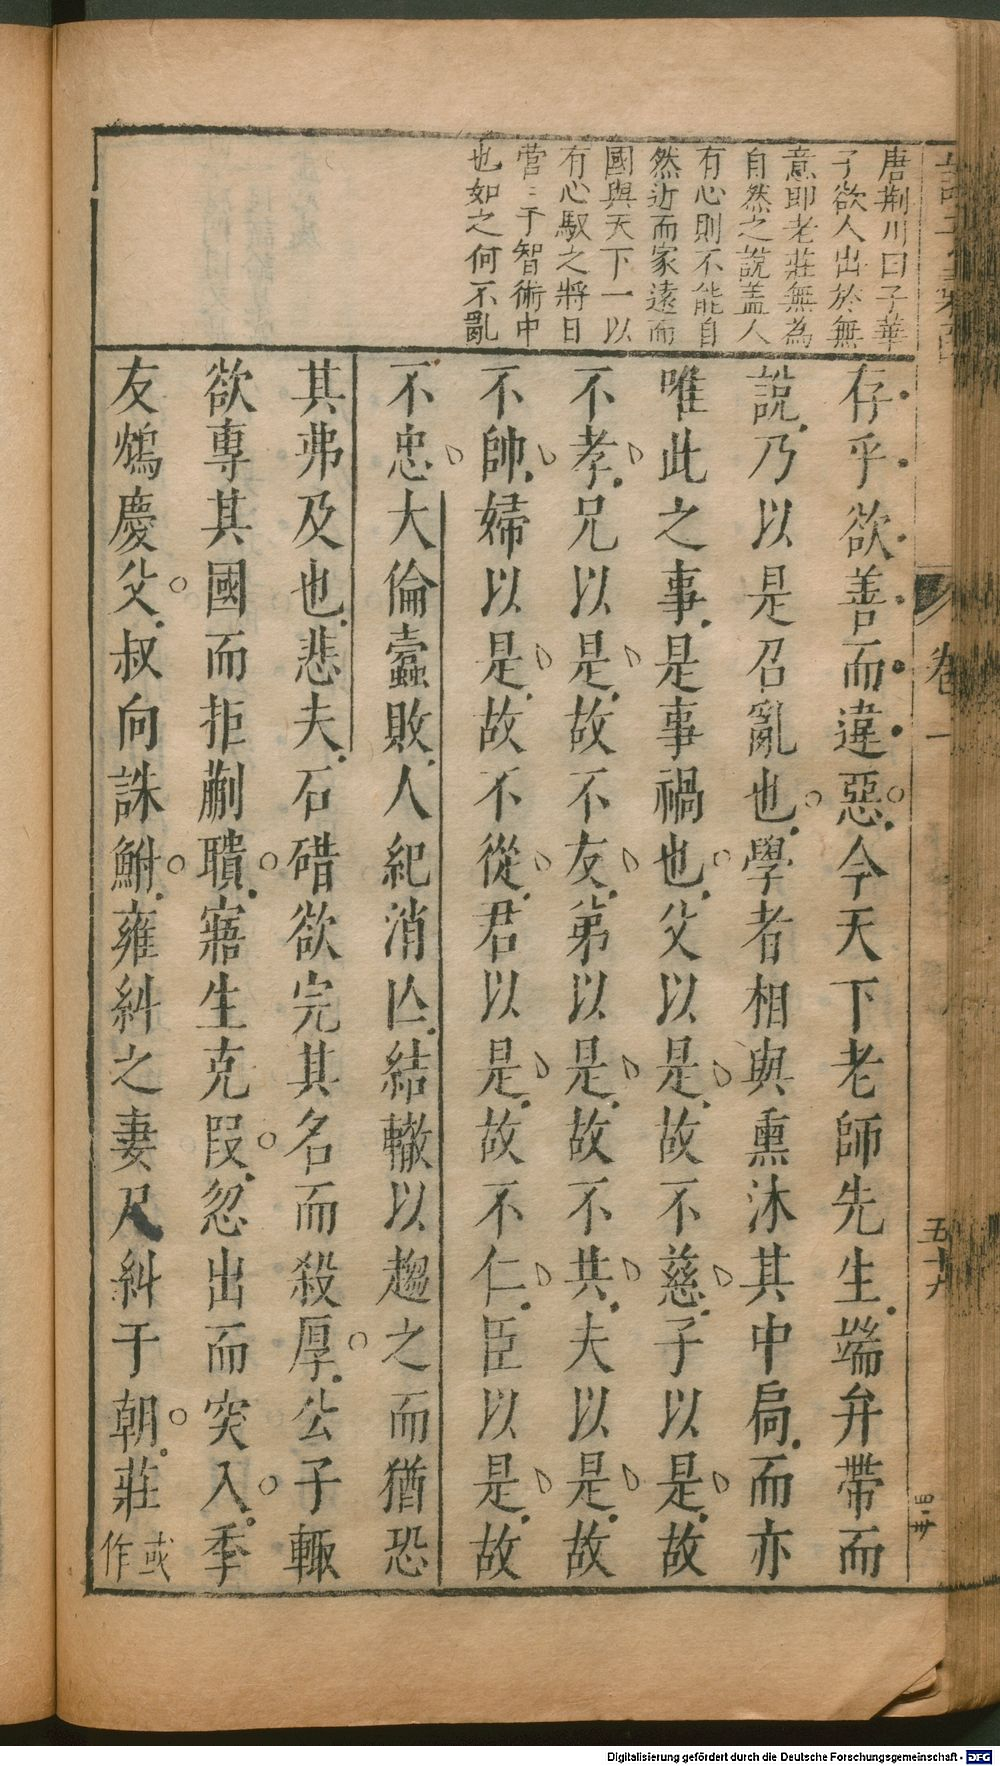 唐荆川曰子華
子欲人出於無
意即老莊無為
自然之說盖人
有心則不能自
然近而家遠而
國與天下一以
有心馭之將日
營〻于智術中
也如之何不亂
存乎欲善而違惡今天下老師先生端弁帶而
說乃以是召亂也學者相與熏沐其中扃而亦
唯此之事是事禍也父以是故不慈子以是故
不孝兄以是故不友弟以是故不共夫以是故
不帥婦以是故不從君以是故不仁臣以是故
不忠大倫蠹敗人紀消亾結轍以趨之而猶恐
其弗及也悲夫石碏欲完其名而殺厚公子輒
欲專其國而拒蒯聵寤生克段忽出而突入季
友鴆慶父叔向誅鮒雍糾之妻尸糾于朝莊或作
卷一
五十八
Digitalisierung gefördert durch die Deutsche Forschungsgemeinschaft - DFG